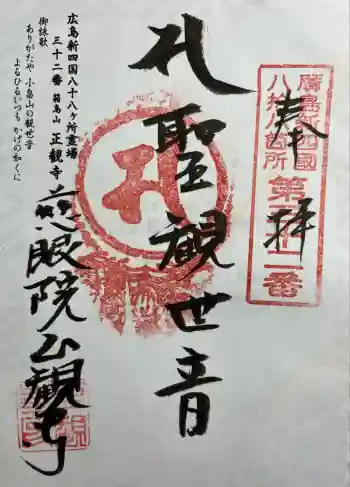 廣島新四國
八十八ヶ所
第三十二番
奉拝
聖観世音
広島新四国八十八ヶ所霊場
三十二番 箱島山 正観寺
御詠歌
ありがたや 小島山の観世音
よるひるいつも かげの如くに
慈眼院正観寺